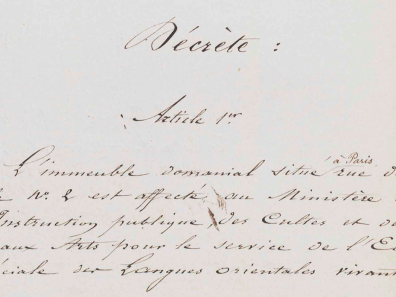 Décrète :
Article 1er
à Paris
L'immeuble domanial situé rue d
le No. 2 est affecté au Ministère
Instruction publique, des Cultes et de
aux Arts pour le service de l'Ec
éciale des Langues orientales vivan